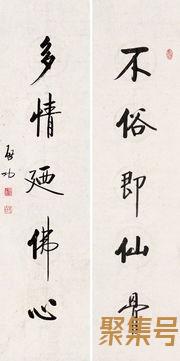 不俗即仙骨
多情廼佛心
启功
聚集号